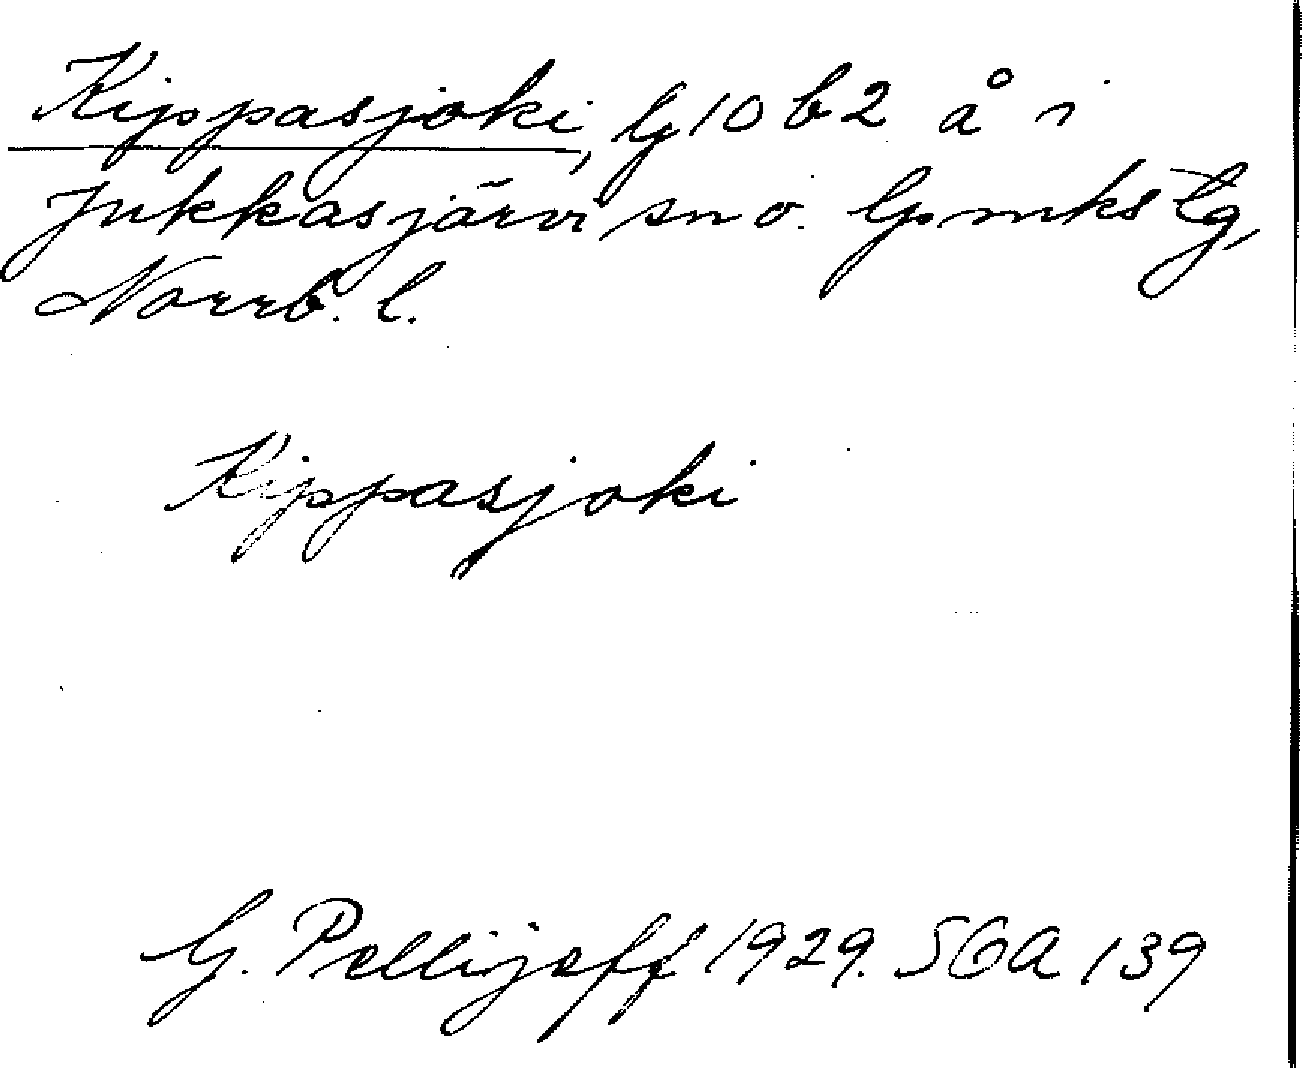 Kippasjoki, G 10 b 2 å i
Jukkasjärvi sn o. lpmks tg,
Norrb. l.
Kippasjoki
G. Pellijeff 1929. SGA 139